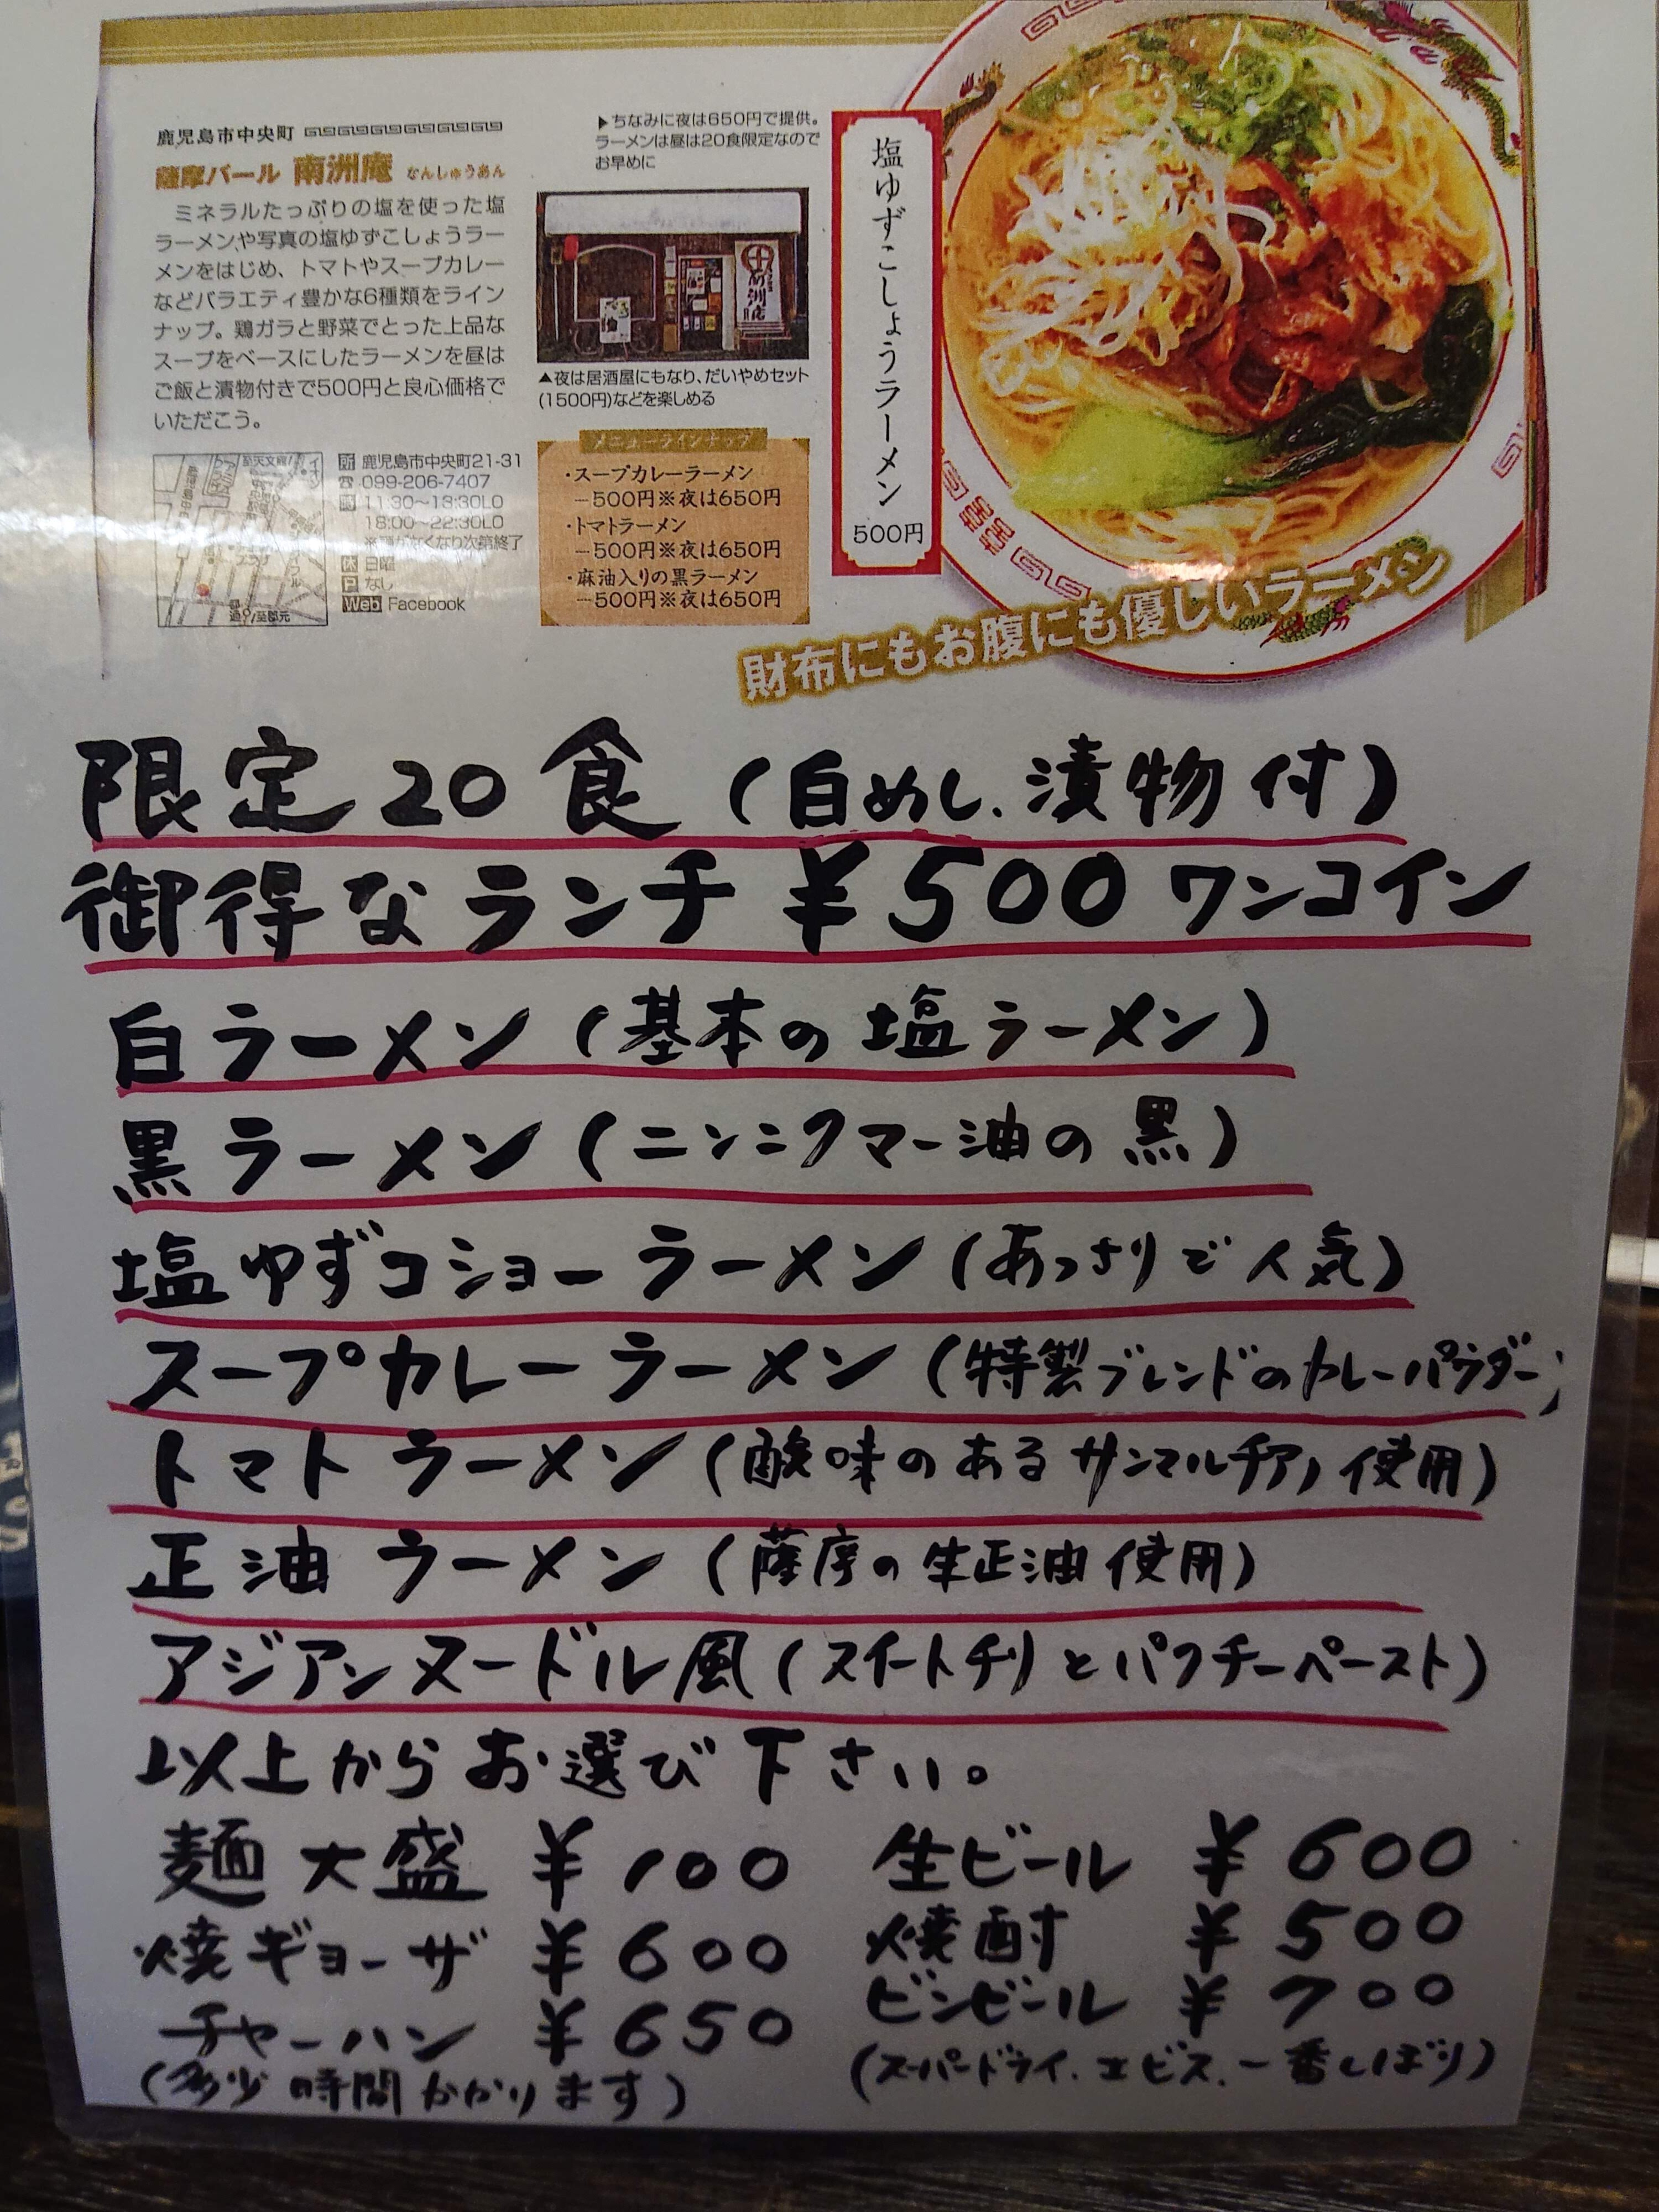 鹿児島市中央町
薩摩バール 南洲庵 なんしゅうあん
ミネラルたっぷりの塩を使った塩
ラーメンや写真の塩ゆずこしょうラー
メンをはじめ、トマトやスープカレー
などバラエティ豊かな6種類をライン
ナップ。鶏ガラと野菜でとった上品な
スープをベースにしたラーメンを昼は
ご飯と漬物付きで500円と良心価格で
いただこう。
所 鹿児島市中央町21-31
099-206-7407
11:30〜13:30LO
18:00〜22:30LO
※麺がなくなり次第終了
休 日曜
P なし
Web Facebook
▶ちなみに夜は650円で提供。
ラーメンは昼は20食限定なので
お早めに
南洲庵
▲夜は居酒屋にもなり、だいやめセット
(1500円)などを楽しめる
メニューラインナップ
・スープカレーラーメン
―500円※夜は650円
・トマトラーメン
―500円※夜は650円
・麻油入りの黒ラーメン
―500円※夜は650円
塩ゆずこしょうラーメン
500円
財布にもお腹にも優しいラーメン
限定20食(白めし、漬物付)
御得なランチ ¥500 ワンコイン
白ラーメン(基本の塩ラーメン)
黒ラーメン(ニンニクマー油の黒)
塩ゆずコショーラーメン(あっさりで人気)
スープカレーラーメン(特製ブレンドのカレーパウダー)
トマトラーメン(酸味のあるサンマルチアノ使用)
正油ラーメン(薩摩の生正油使用)
アジアンヌードル風(スイートチリとパクチーペースト)
以上からお選び下さい。
麺大盛 ¥100 生ビール ¥600
焼ギョーザ ¥600 焼酎 ¥500
チャーハン ¥650 ビンビール ¥700
(多少時間かかります) (スーパードライ、エビス、一番しぼり)